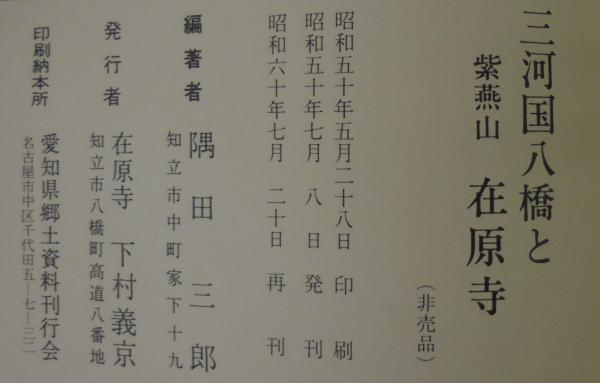 三河国八橋と
紫燕山 在原寺
(非売品)
昭和五十年五月二十八日 印刷
昭和五十年七月 八 日 発刊
昭和六十年七月 二十日 再刊
編著者 隅田三郎
知立市中町家下十九
発行者 在原寺 下村義京
知立市八橋町高道八番地
印刷納本所 愛知県郷土資料刊行会
名古屋市中区千代田五―七―三二